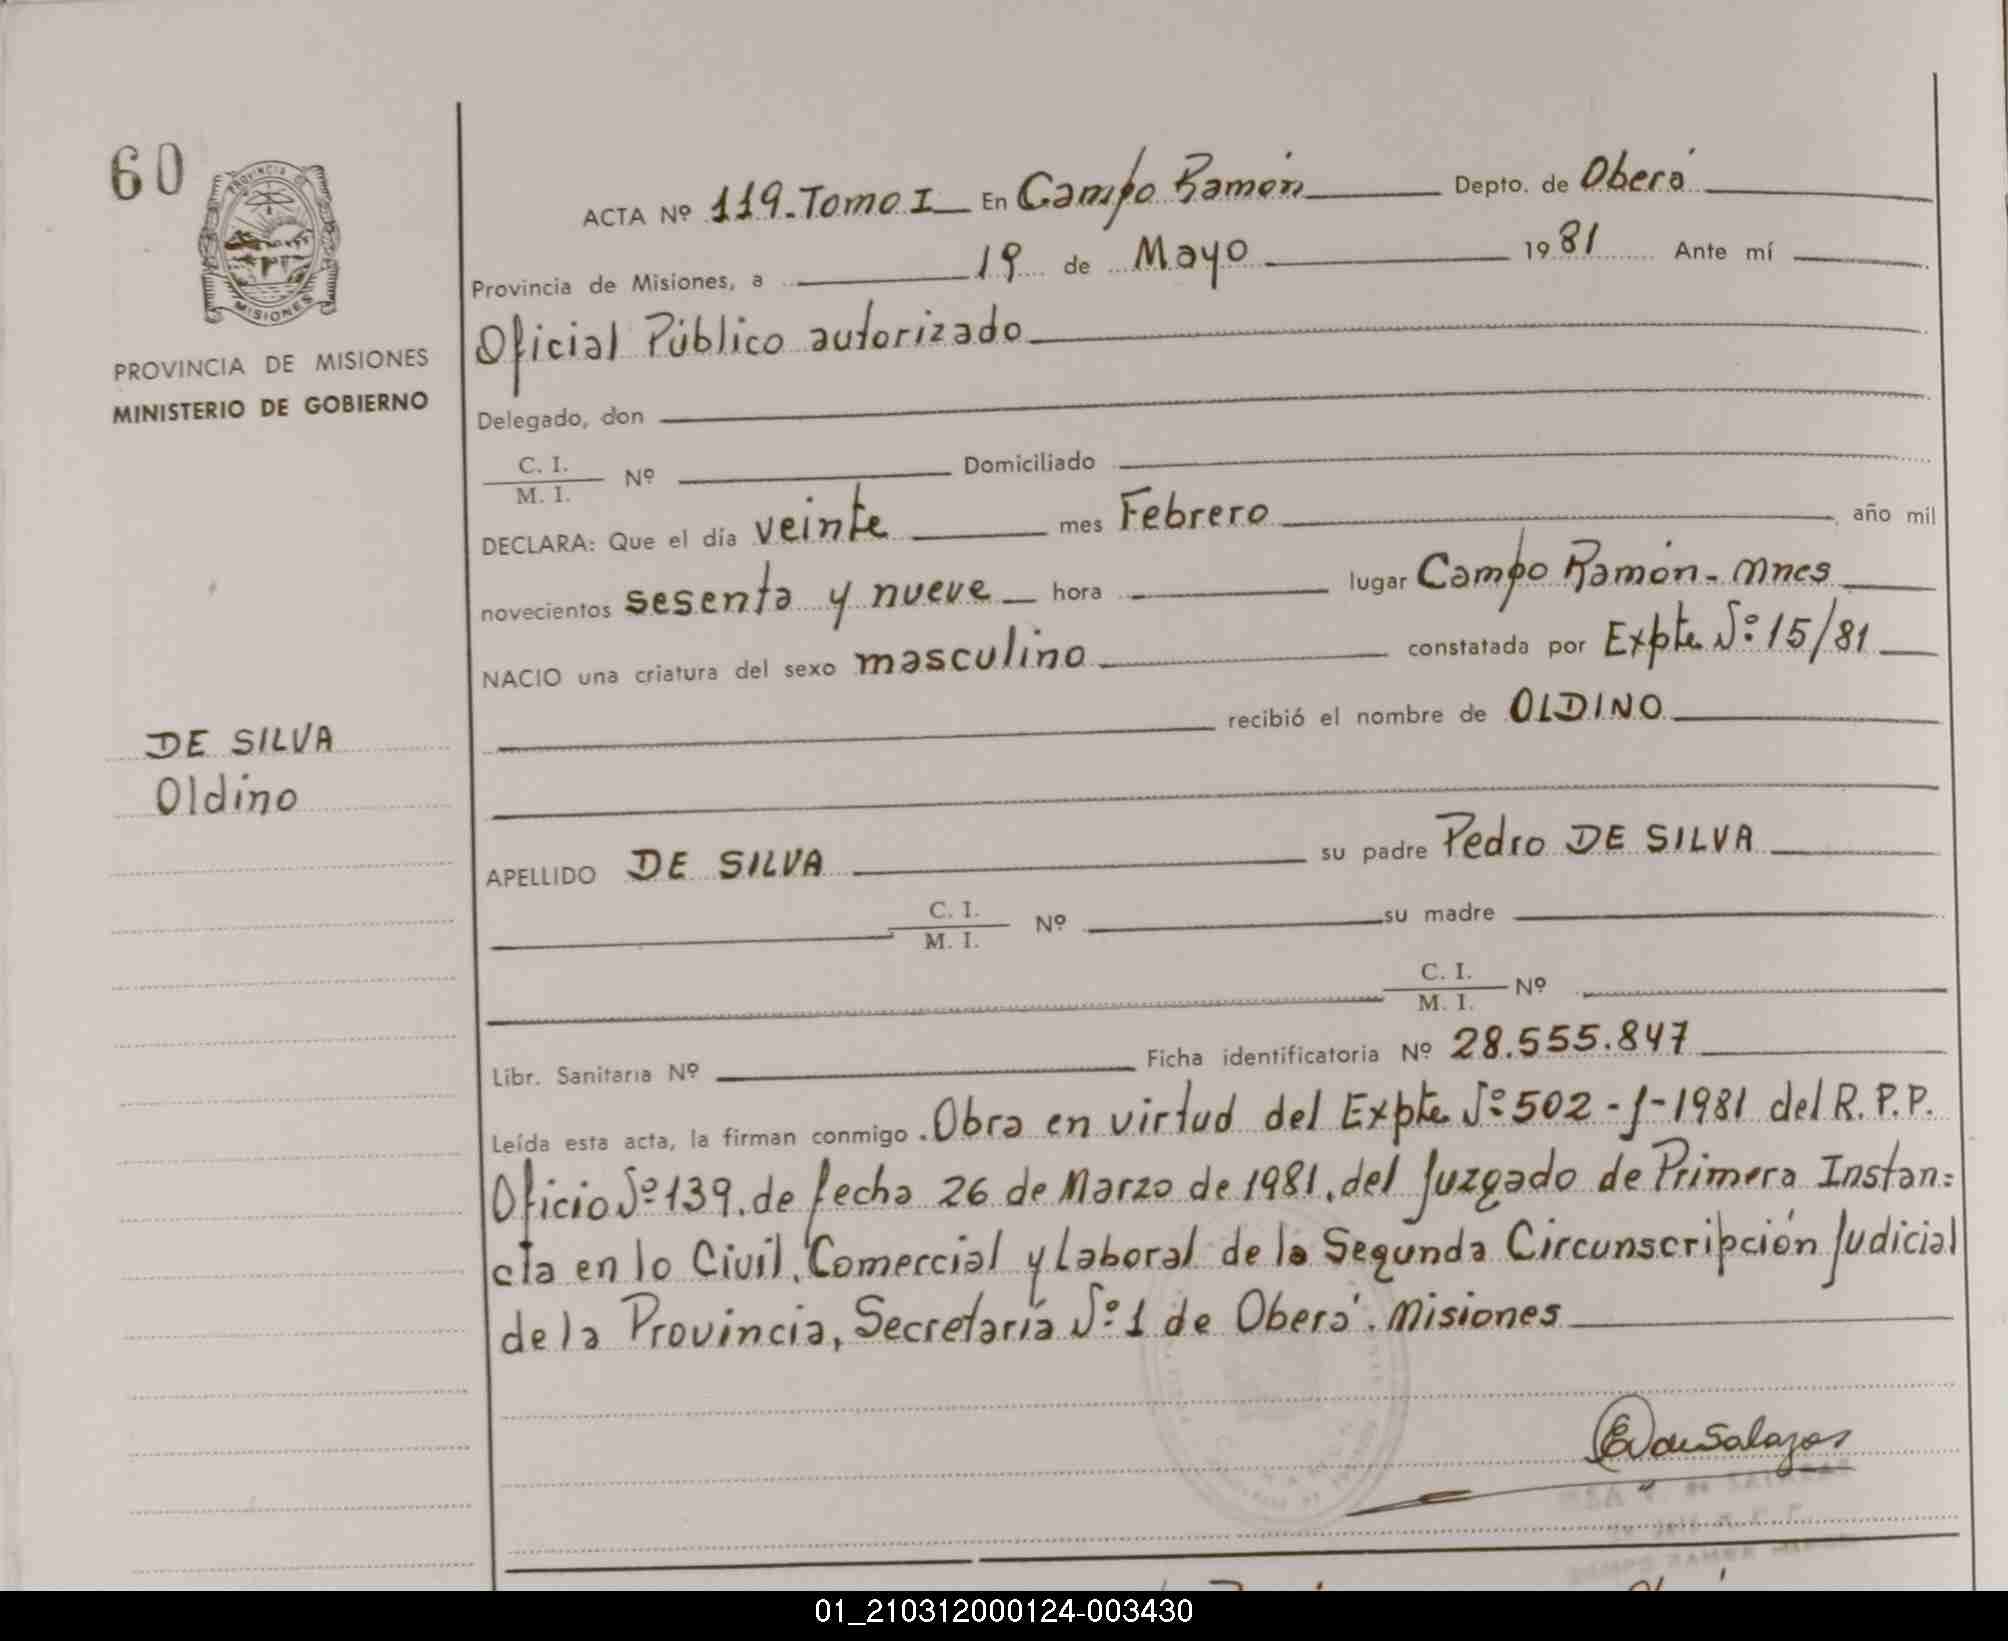 60
PROVINCIA DE
MISIONES
PROVINCIA DE MISIONES
MINISTERIO DE GOBIERNO
DE SILVA
Oldino
ACTA Nº 119. Tomo I En Campo Ramón Depto. de Oberá
Provincia de Misiones, a 19 de Mayo 1981 Ante mí
Oficial Público autorizado
Delegado, don
C. I.
M. I. Nº Domiciliado
DECLARA: Que el día veinte mes Febrero año mil
novecientos sesenta y nueve hora lugar Campo Ramón. Mnes
NACIO una criatura del sexo masculino constatada por Expte Nº 15/81
recibió el nombre de OLDINO
APELLIDO DE SILVA su padre Pedro DE SILVA
C. I.
M. I. Nº su madre
C. I.
M. I. Nº
Libr. Sanitaria Nº Ficha identificatoria Nº 28.555.847
Leída esta acta, la firman conmigo. Obra en virtud del Expte Nº 502-J-1981 del R. P. P.
Oficio Nº 139. de fecha 26 de Marzo de 1981. del Juzgado de Primera Instan=
cia en lo Civil, Comercial y Laboral de la Segunda Circunscripción Judicial
de la Provincia, Secretaría Nº 1 de Oberá. Misiones
de Salazar
01_210312000124-003430